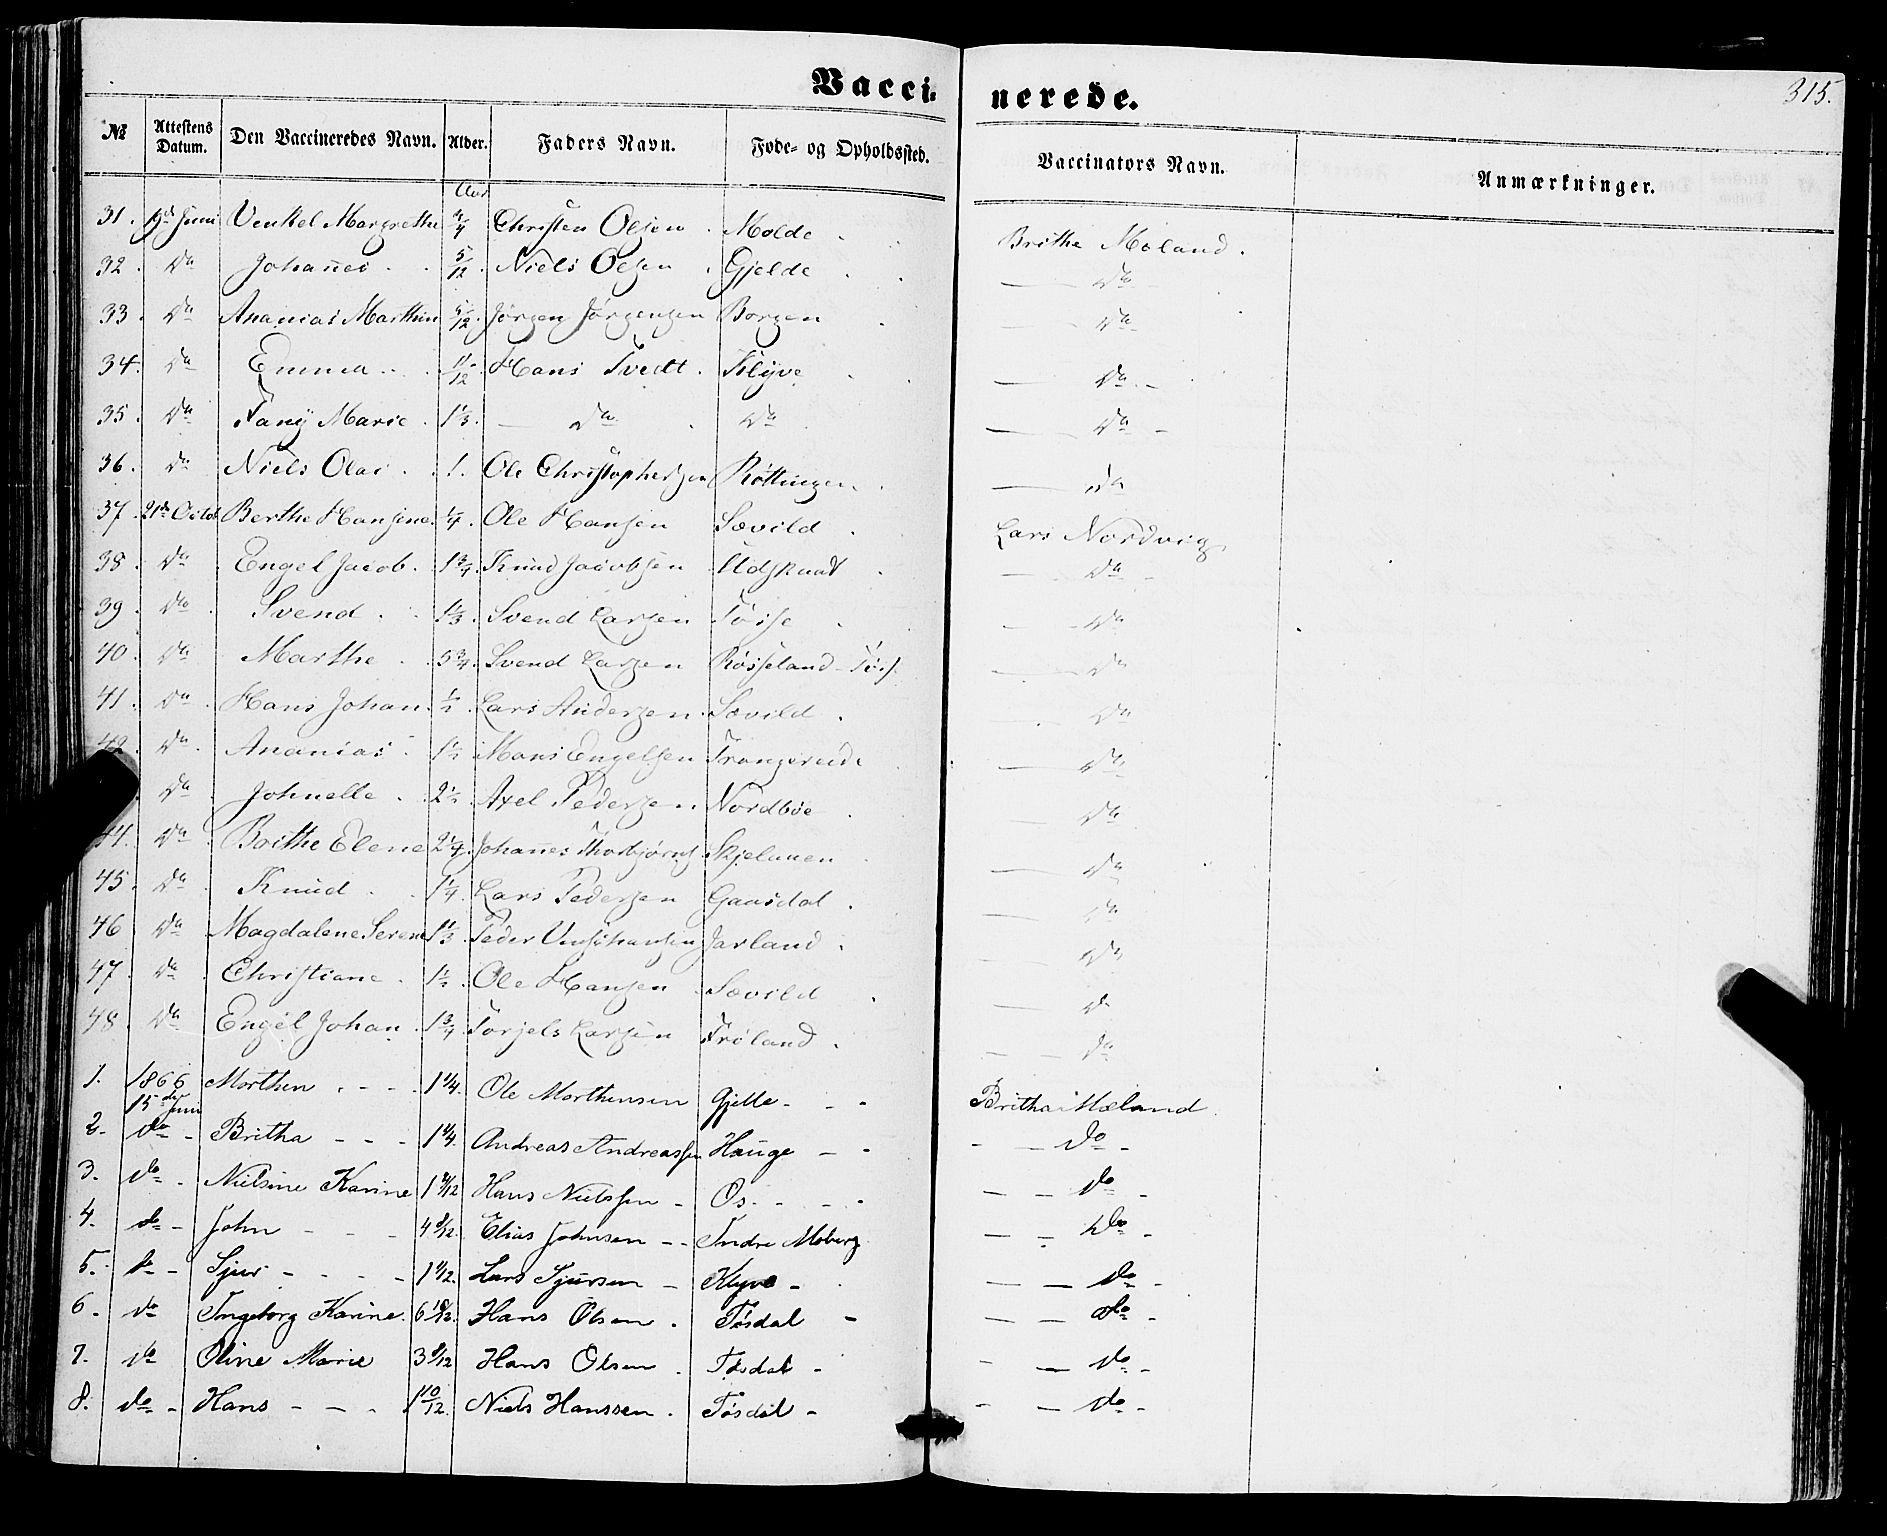 Vacci-nerede.
315.
№ Attestens Datum. Den Vaccineredes Navn. Alder. Faders Navn. Føde- og Opholdssted. Vaccinators Navn. Anmærkninger.
Aar
31. 19de Juni Venkel Margrethe Christen Olsen Molde Brithe Mæland.
32. Do Johanes 5/12 Niels Olsen Gjelde Do
33. Do Ananias Marthin 5/12 Jørgen Jørgensen Borgen Do
34. Do Emma 11/12 Hans Tvedt Klyve Do
35. Do Fany Marie 1 1/3 Do Do Do
36. Do Niels Olai 1 Ole Christophersen Røttingen Do
37. 21de Octob Berthe Hansine 1/4 Ole Hansen Søvild Lars Nordvig
38. Do Engel Jacob 1 3/4 Knud Jacobsen Udskaat Do
39. Do Svend 1 1/3 Svend Larsen Tøsse Do
40. Do Marthe 5 3/4 Svend Larsen Røsseland Do
41. Do Hans Johan 1/2 Lars Andersen Søvild Do
42. Do Ananias 1 1/2 Mons Engelsen Trangereide Do
Do Johnelle 2 1/2 Axel Pedersen Nordbøe Do
44. Do Brithe Elene 2 1/4 Johanes Thorbjørns Skjelanen Do
45. Do Knud 1 1/4 Lars Pedersen Gaasdal Do
46 Do Magdalene Serene 1 1/3 Peder Jarland Do
47. Do Christiane 1 1/2 Ole Hansen Søvild Do
48. Do Engel Johan 1 3/4 Torjels Larsen Trøland Do
1. 1866 15de Juni Morthen 1 1/4. Ole Morthensen Gjelle Britha Mæland
2. do Britha 1 1/4. Andreas Andreassen Hauge do
3. do Nielsine Karine Hans Nielssen Os do
4. do John Elias Johnsen Indre Moberg do
5. do Sjur Lars Sjursen Klyve do
6. do Ingeborg Karine Hans Olsen Tøsdal do
7. do Oline Marie Hans Olsen Tøsdal do
8. do Hans 1 10/12. Niels Hanssen Tøsdal do